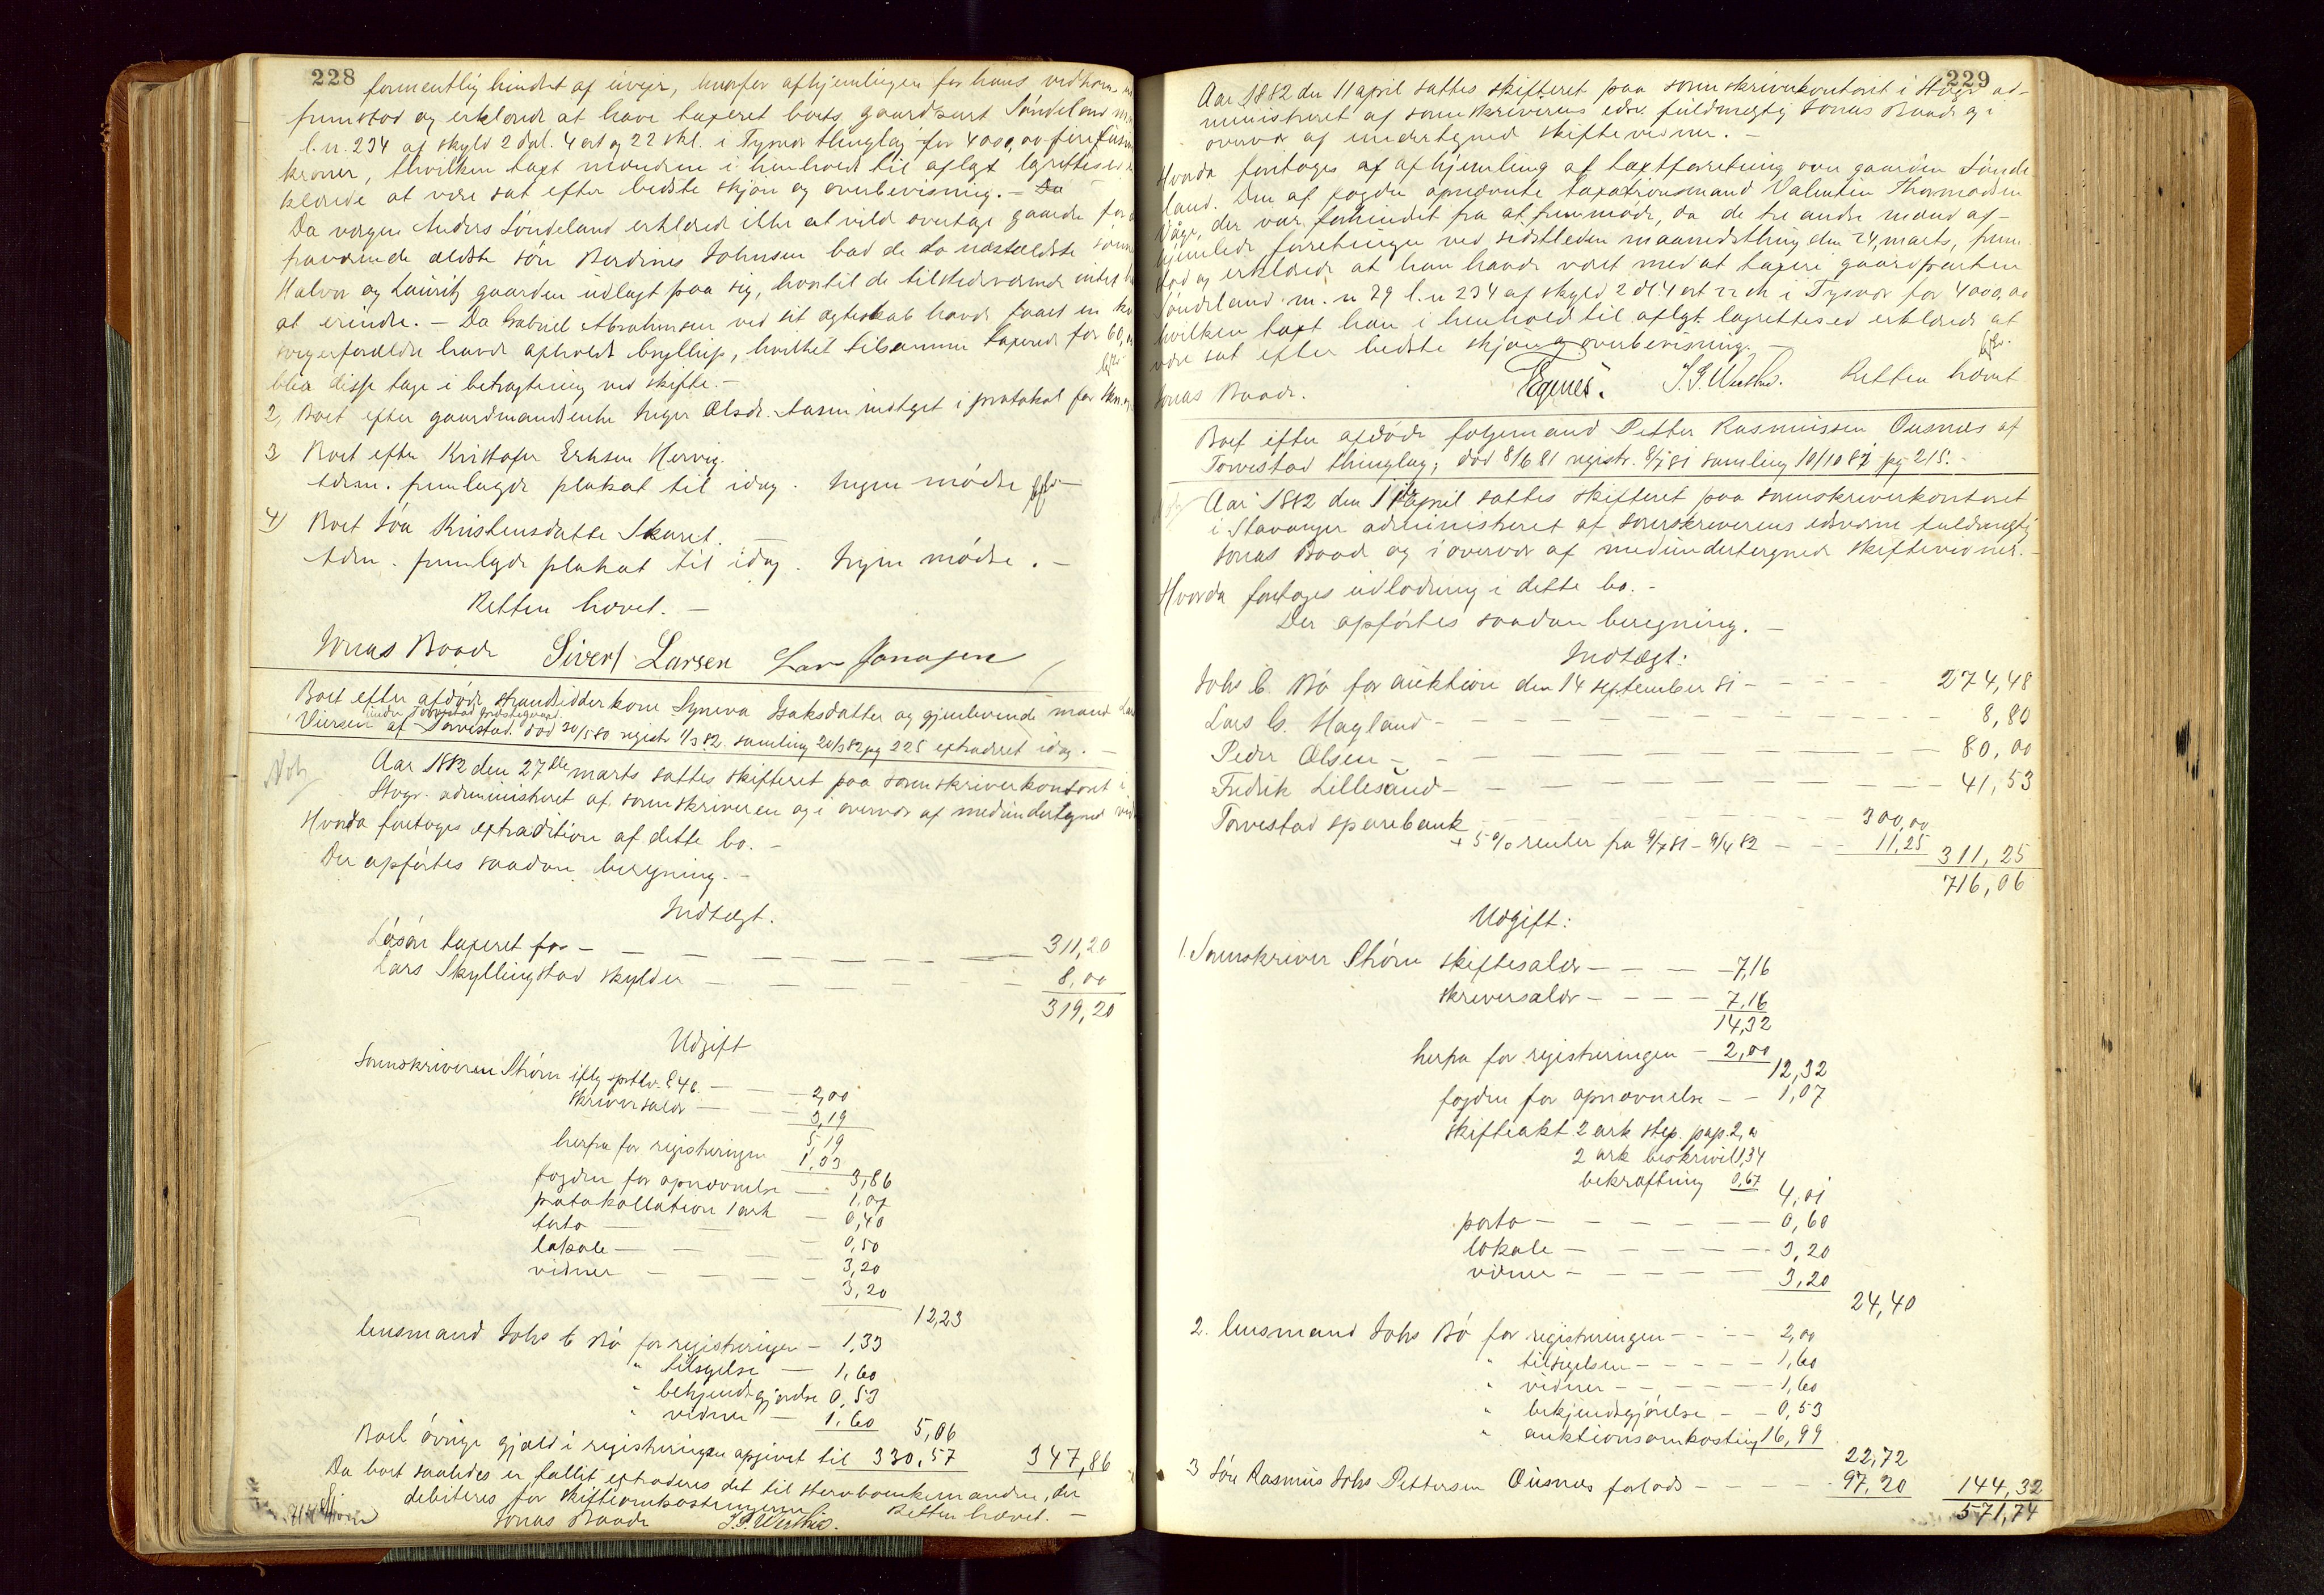 228
formentlig hindret af uveir, hvorfor afhjemlingen for hans vedkom-
fremstod og erklærede at have taxeret boets gaardpart Söndeland
l.n. 234 af skyld 2 dal. 4 ort og 22 skl. i Tysvær thinglag for 4000,00 firetusin
kroner, hvilken taxt mændene i henhold til aflagt lagrettesed er
klærede at være sat efter bedste skjön og overbevisning. —
Da værgen Anders Söndeland erklærede ikke at ville overtage gaarden for
fraværende ældste sön Berdines Johnsen bad de to næstældste sönner
Halvor og Lauritz gaarden udlagt paa sig, hvortil de tilstedeværende intet
at erindre. — Da Gabriel Abrahamsen ved sit ægteskab havde faaet en ko
svigerforældre havde afholdt bryllup, hvilket tilsammen taxeredes for 60,
blev disse tage i betragtning ved skifte. —
2, Boet efter gaardmandsenke Inger Olsdr. Aasen indtaget i protokol for
3 Boet efter Kristofer Eriksen Hervig.
Adm. fremlagde plakat til idag. Ingen mödte
4) Boet Söa Kristensdatter Skaret. —
Adm. fremlagde plakat til idag. Ingen mödte. —
Retten hævet. —
Jonas Baade Sivert Larsen Lars Jonassen
Boet efter afdöde strandsidderkone Syneva Isaksdatter og gjenlevende mand Lars
under Torvestad præstegaard
Viersen af Torvestad. död 20/5 80 registr 1/3 82. samling 20/3 82 pg 225 extraderet idag. —
Not
Aar 1882 den 27de marts sattes skifteret paa sorenskriverkontoret i
Stvgr. administreret af sorenskriveren og i overvær af medundertegnede
Hvorda foretoges extradition af dette bo. —
Der opförtes saadan beregning. —
Indtægt.
Lösöre taxeret for — 311,20
Lars Skyllingstad skylder — 8,00
319,20
Udgift
Sorenskriveren Ström iflg sprtlv. § 46 — 2,00
skriversalær — 3,19
5,19
herfra for registreringen 1,33
3,86
fogden for opnævnelse — 1,07
protokollation 1 ark — 0,40
porto — 0,50
lokale — 3,20
vidner — 3,20
12,23
lensmand Johs C Bö for registreringen — 1,33
" tilsigelse — 1,60
" bekjendtgjörelse 0,53
" vidner — 1,60 5,06
Boets övrige gjæld i registreringen opgivet til 330,57 347,86
Da boet saaledes er fallit extraderes det til sterboenkemanden, der
debiteres for skifteomkostningerne
Jonas Baade Retten hævet. —
229
Aar 1882 den 11 april sattes skifteret paa sorenskriverkontoret i Stvgr ad-
ministreret af sorenskriverens edsv. fuldmægtig Jonas Baade og i
overvær af undertegnede skiftevidner. —
Hvorda foretoges af afhjemling af taxtforretning over gaarden Sönde
land. Den af fogden opnævnte taxationsmand Valentin Thormodsen
Våge, der var forhindret fra at fremmöde, da de tre andre mænd af-
hjemlede forretningen ved sidstleden maanedsthing den 24, marts, frem-
stod og erklærede at han havde været med at taxere gaardparten
Söndeland m. n 79 l. n 234 af skyld 2 dl. 4 ort 22 sk i Tysvær for 4000,00
hvilken taxt han i henhold til aflagt lagrettesed erklærede at
være sat efter bedste skjön og overbevisning. —
Jonas Baade. Egenes. Retten hævet
Boet efter afdöde folgemand Petter Rasmussen Ousnes af
Torvestad thinglag, död 8/6 81 registr. 8/7 81 samling 10/10 81 pg 215. —
Aar 1882 den 11te april sattes skifteret paa sorenskriverkontoret
i Stavanger administreret af sorenskriverens edsvorne fuldmægtig
Jonas Baade og i overvær af medundertegnede skiftevidner. —
Hvorda foretoges udlodning i dette bo. —
Der opförtes saadan beregning. —
Indtægt:
Johs C. Bö for auktion den 14 september 81 — 274,48
Lars G. Hagland — 8,80
Peder Olsen — 80,00
Fredrik Lillesund — 41,53
Torvestad sparebank — 300,00
+ 5 % renter fra 9/7 81 – 9/4 82 — 11,25 311,25
716,06
Udgift:
1. Sorenskriver Ström skiftesalær — 7,16
skriversalær — 7,16
14,32
herfra for registreringen — 2,00 12,32
fogden for opnævnelse — 1,07
skifteakt 2 ark step. pap. 2,00
2 ark beskrivel 1,34
bekræftning 0,67 4,01
porto — 0,60
lokale — 3,20
vidner — 3,20
24,40
2. lensmand Johs Bö for registreringen — 2,00
" tilsigelsen — 1,60
" vidner — 1,60
" bekjendtgjörelse — 0,53
" auktionsomkostning 16,99
22,72
3 Sön Rasmus Johs Pettersen Ousnes forlods — 97,20 144,32
571,74